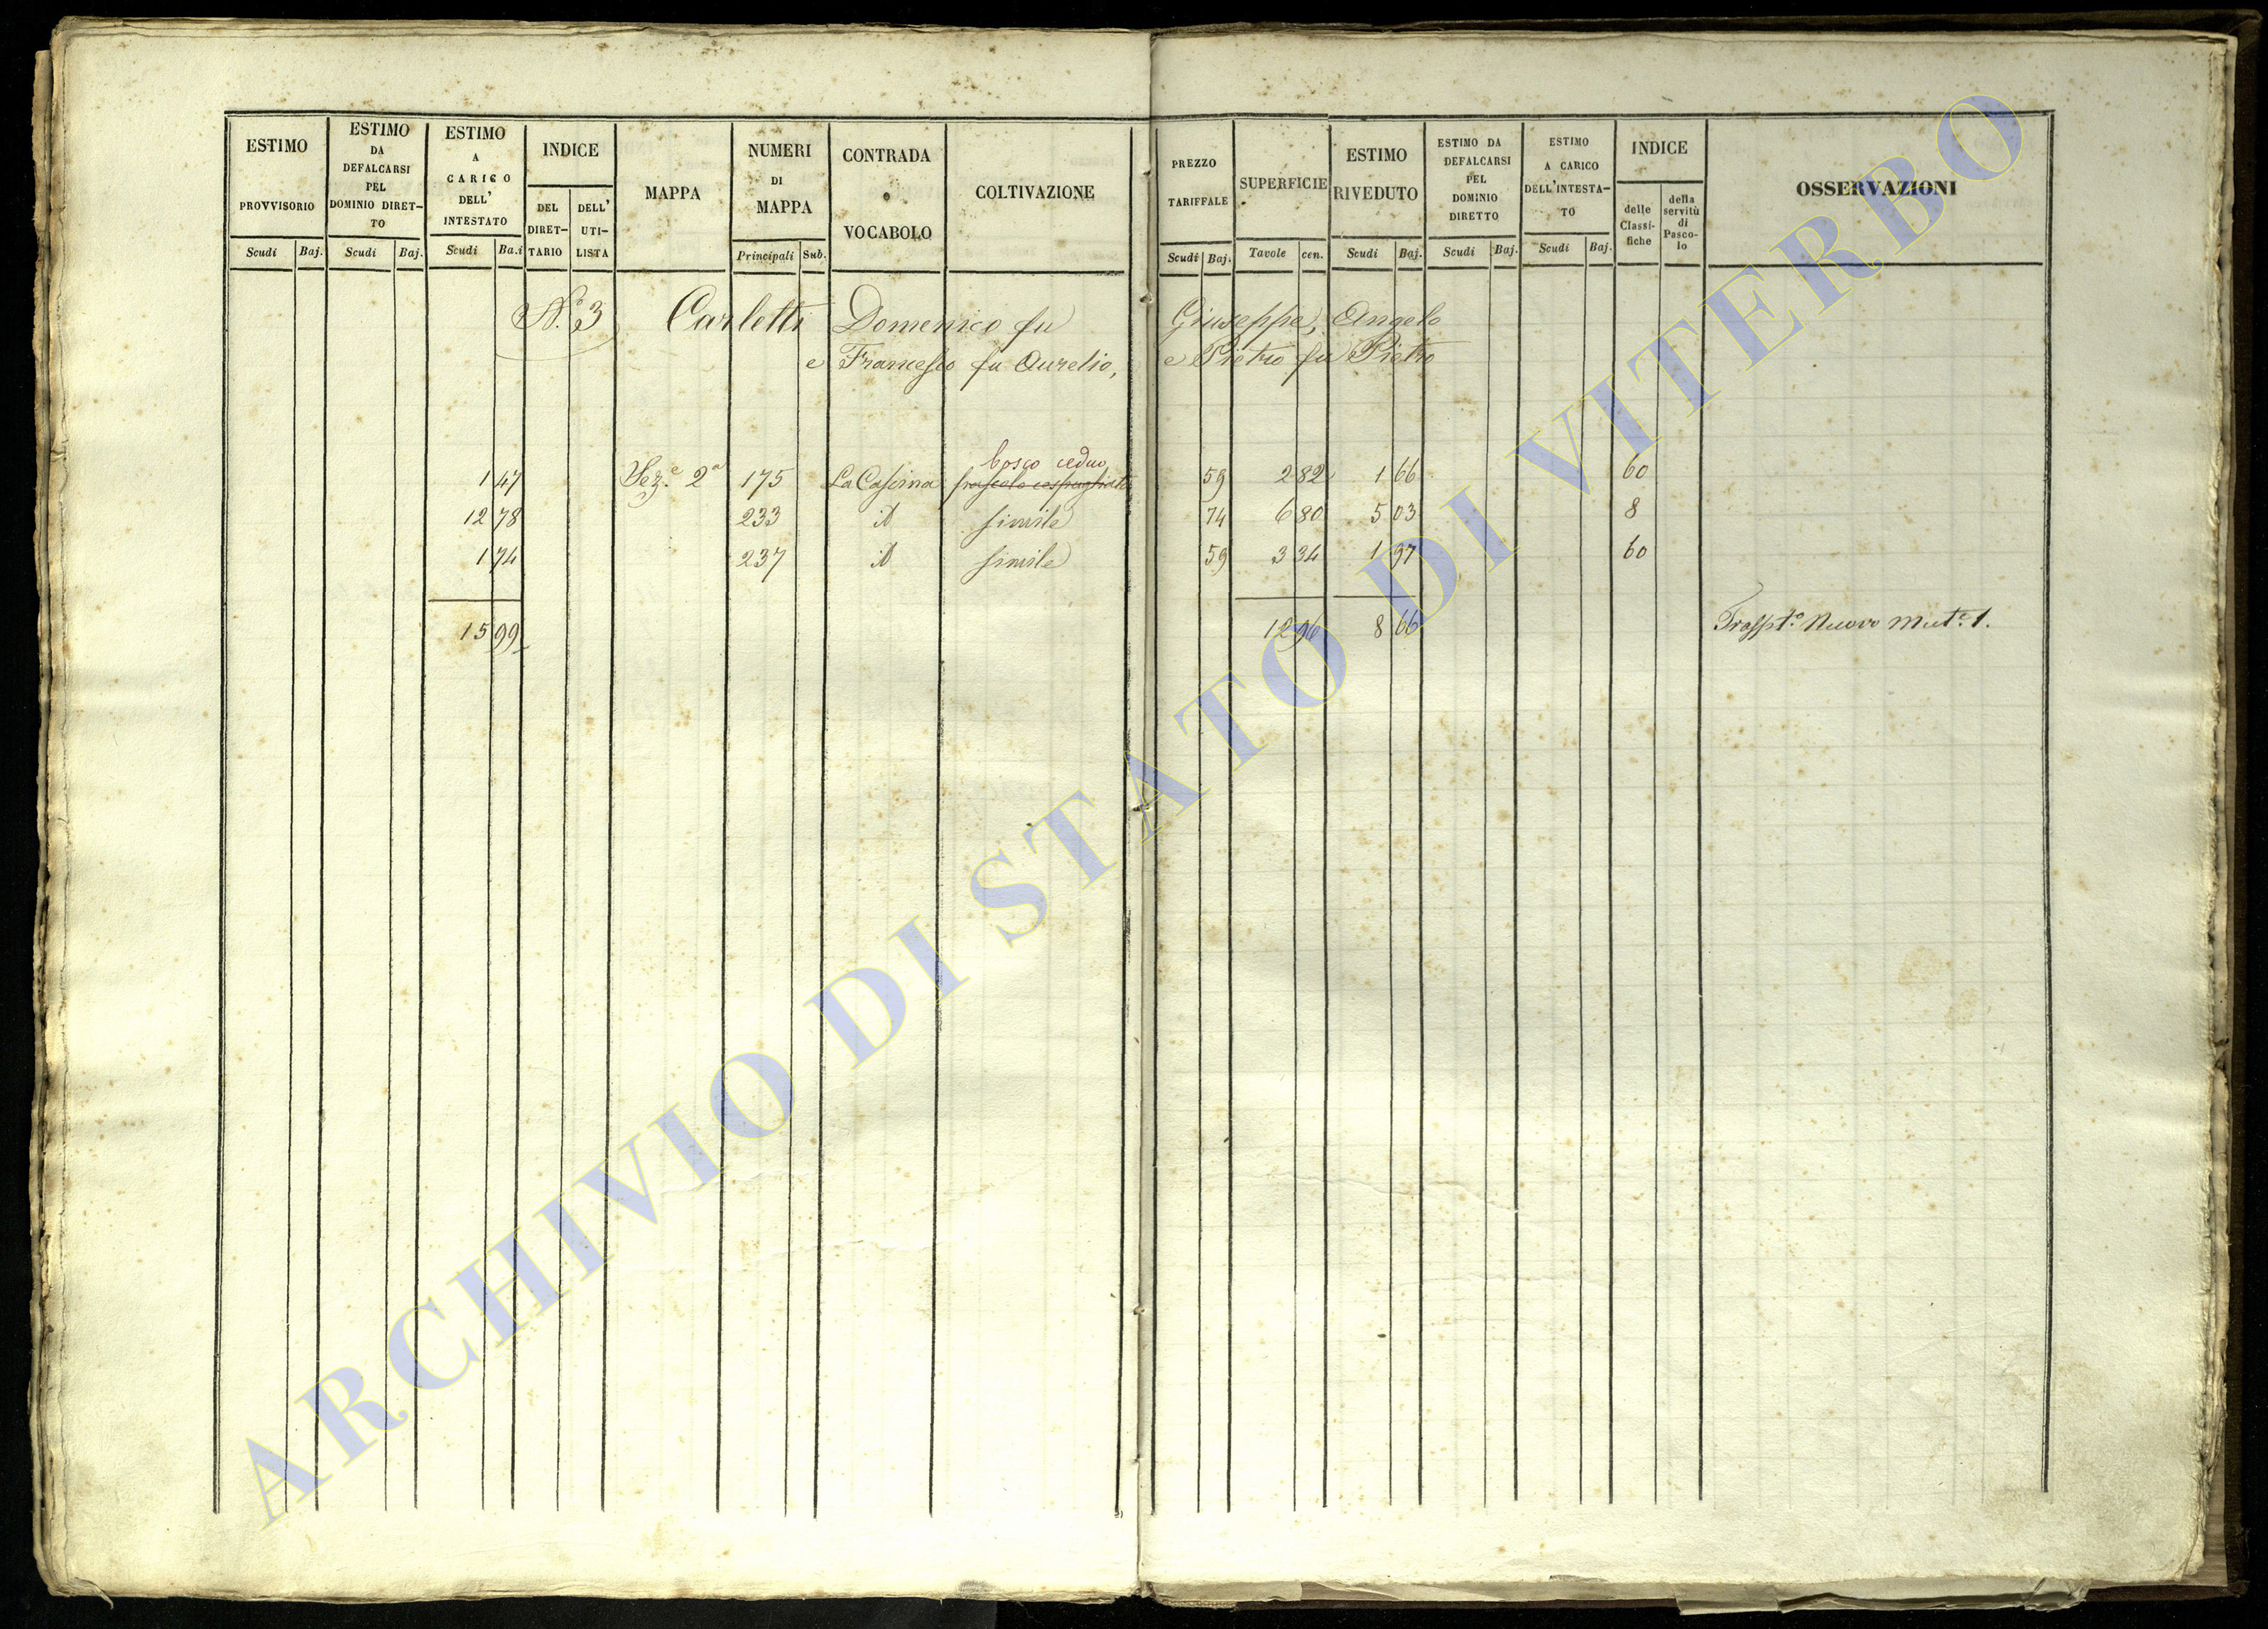 ESTIMO PROVVISORIO Scudi Baj.
ESTIMO DA DEFALCARSI PEL DOMINIO DIRET-TO Scudi Baj.
ESTIMO A CARICO DELL' INTESTATO Scudi Ba.i
INDICE DEL DIRET-TARIO DELL' UTI-LISTA
MAPPA
NUMERI DI MAPPA Principali Sub.
CONTRADA o VOCABOLO
COLTIVAZIONE
PREZZO TARIFFALE Scudi Baj.
SUPERFICIE Tavole cen.
ESTIMO RIVEDUTO Scudi Baj.
ESTIMO DA DEFALCARSI PEL DOMINIO DIRETTO Scudi Baj.
ESTIMO A CARICO DELL'INTESTA-TO Scudi Baj.
INDICE delle Classi-fiche della servitù di Pasco-lo
OSSERVAZIONI
N.º 3 Carletti Domenico fu Giuseppe, Angelo
e Francesco fu Aurelio, e Pietro fu Pietro
bosco ceduo
1 47 Sez.e 2a 175 La Caserma pascolo cespugliato 59 2 82 1 66 60
12 78 233 id simile 74 6 80 5 03 8
1 74 237 id simile 59 3 34 1 97 60
15 99 12 96 8 66 Trasp.to Nuovo Mut.e 1.
ARCHIVIO DI STATO DI VITERBO